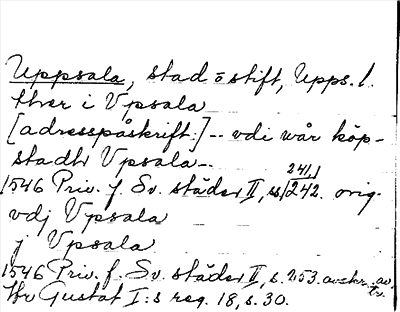 Uppsala, stad o stift, Upps. l.
ther i Vpsala
[adresspåskrift:] -- vdi wår köp-
stadh Vpsala --
241,
1546 Priv. f. Sv. städer II, s. 242. orig.
vdj Vpsala
j Vpsala
1546 Priv. f. Sv. städer II, s. 253. avskr. av
Gustaf I:s reg. 18, s. 30.